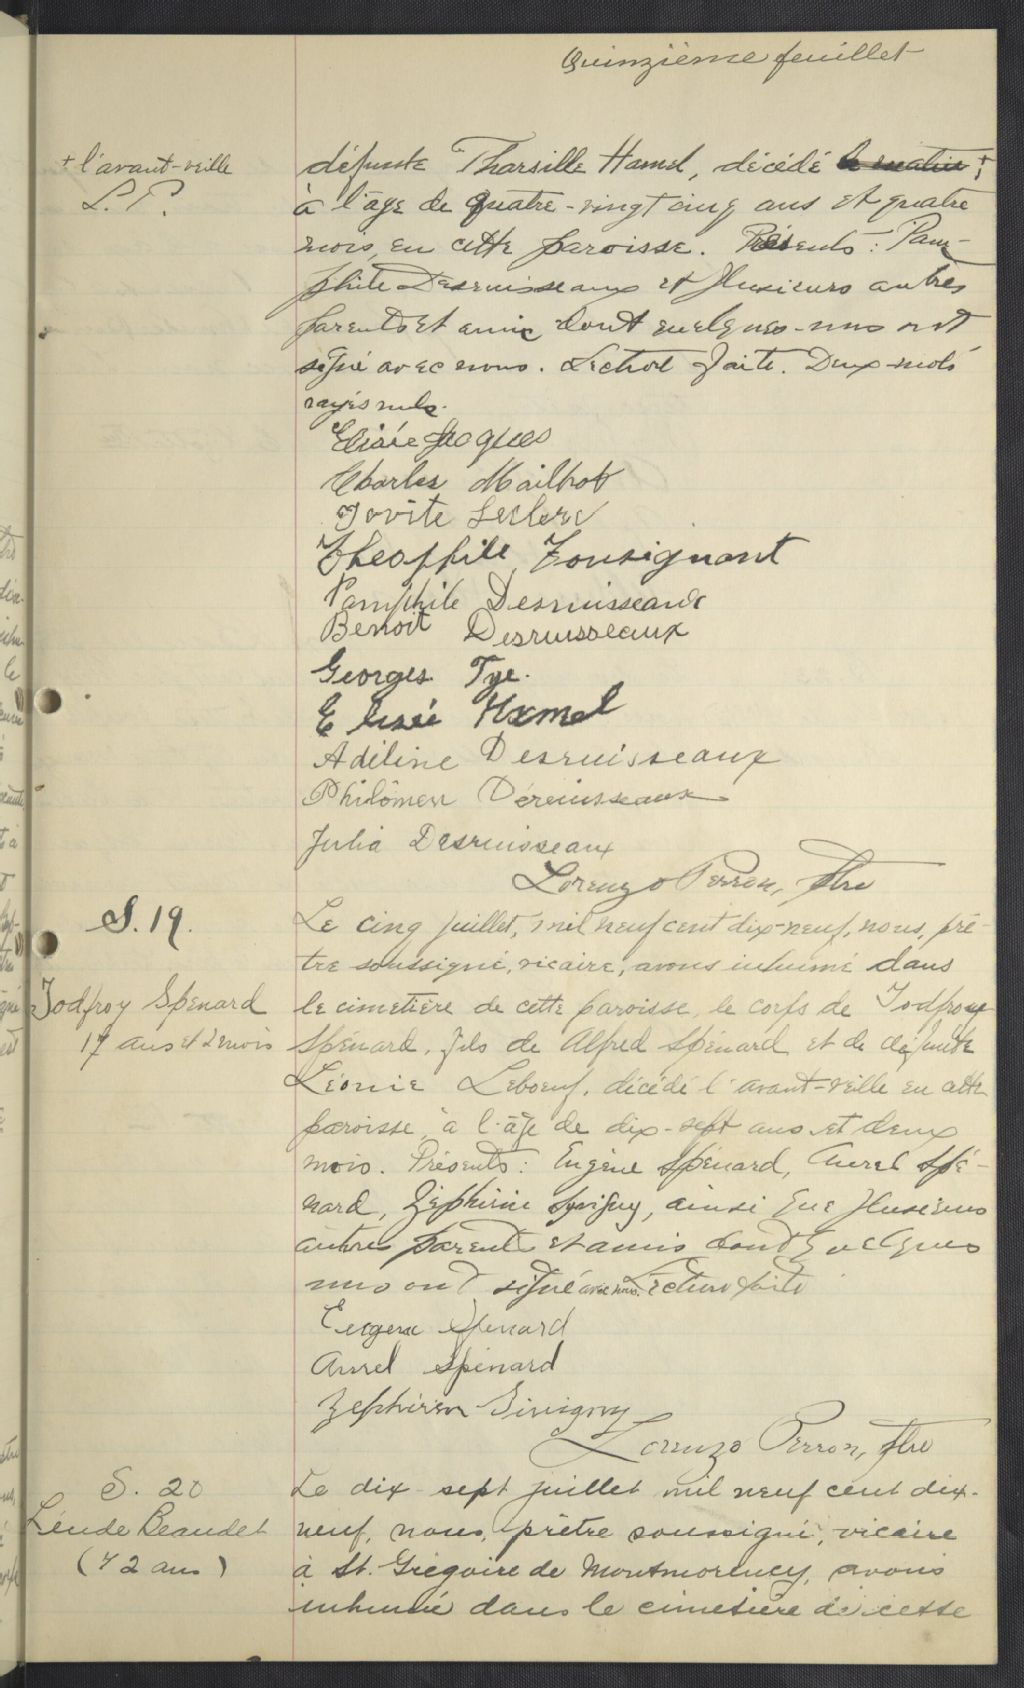 Quinzième feuillet
+ l'avant-veille
L. P.
défunte Tharsille Hamel, décédé +
à l'âge de quatre-vingt cinq ans et quatre
mois, en cette paroisse. Présents : Pam-
phile Desruisseaux et plusieurs autres
parents et amis dont quelques-uns ont
signé avec nous. Lecture faite. Deux mots
rayés nuls.
Elisée Jacques
Charles Mailhot
Jovite Leclerc
Théophile Tousignant
Pamphile Desruisseaux
Benoit Desruisseaux
Georges Tye.
Elisée Hamel
Adéline Desruisseaux
Philômen Déruisseaux
Julia Desruisseaux
Lorenzo Perron, ptre
S. 19.
Godfroy Spénard
17 ans et 2 mois
Le cinq juillet, mil neuf cent dix-neuf, nous, prê-
tre soussigné, vicaire, avons inhumé dans
le cimetière de cette paroisse, le corps de Godfroy
Spénard, fils de Alfred Spénard et de défunte
Léonie Leboeuf, décédé l'avant-veille en cette
paroisse, à l'âge de dix-sept ans et deux
mois. Présents : Eugène Spénard, Aurel Spé-
nard, Zéphirin Sévigny, ainsi que plusieurs
autres parents et amis dont quelques
uns ont signé avec nous. Lecture faite
Eugene Spenard
Aurel Spénard
Zephirin Sivigny
Lorenzo Perron, ptre
S. 20
Beaudet
(42 ans)
Le dix-sept juillet mil neuf cent dix-
neuf, nous, prêtre soussigné, vicaire
à St. Grégoire de Montmorency, avons
inhumé dans le cimetière de cette